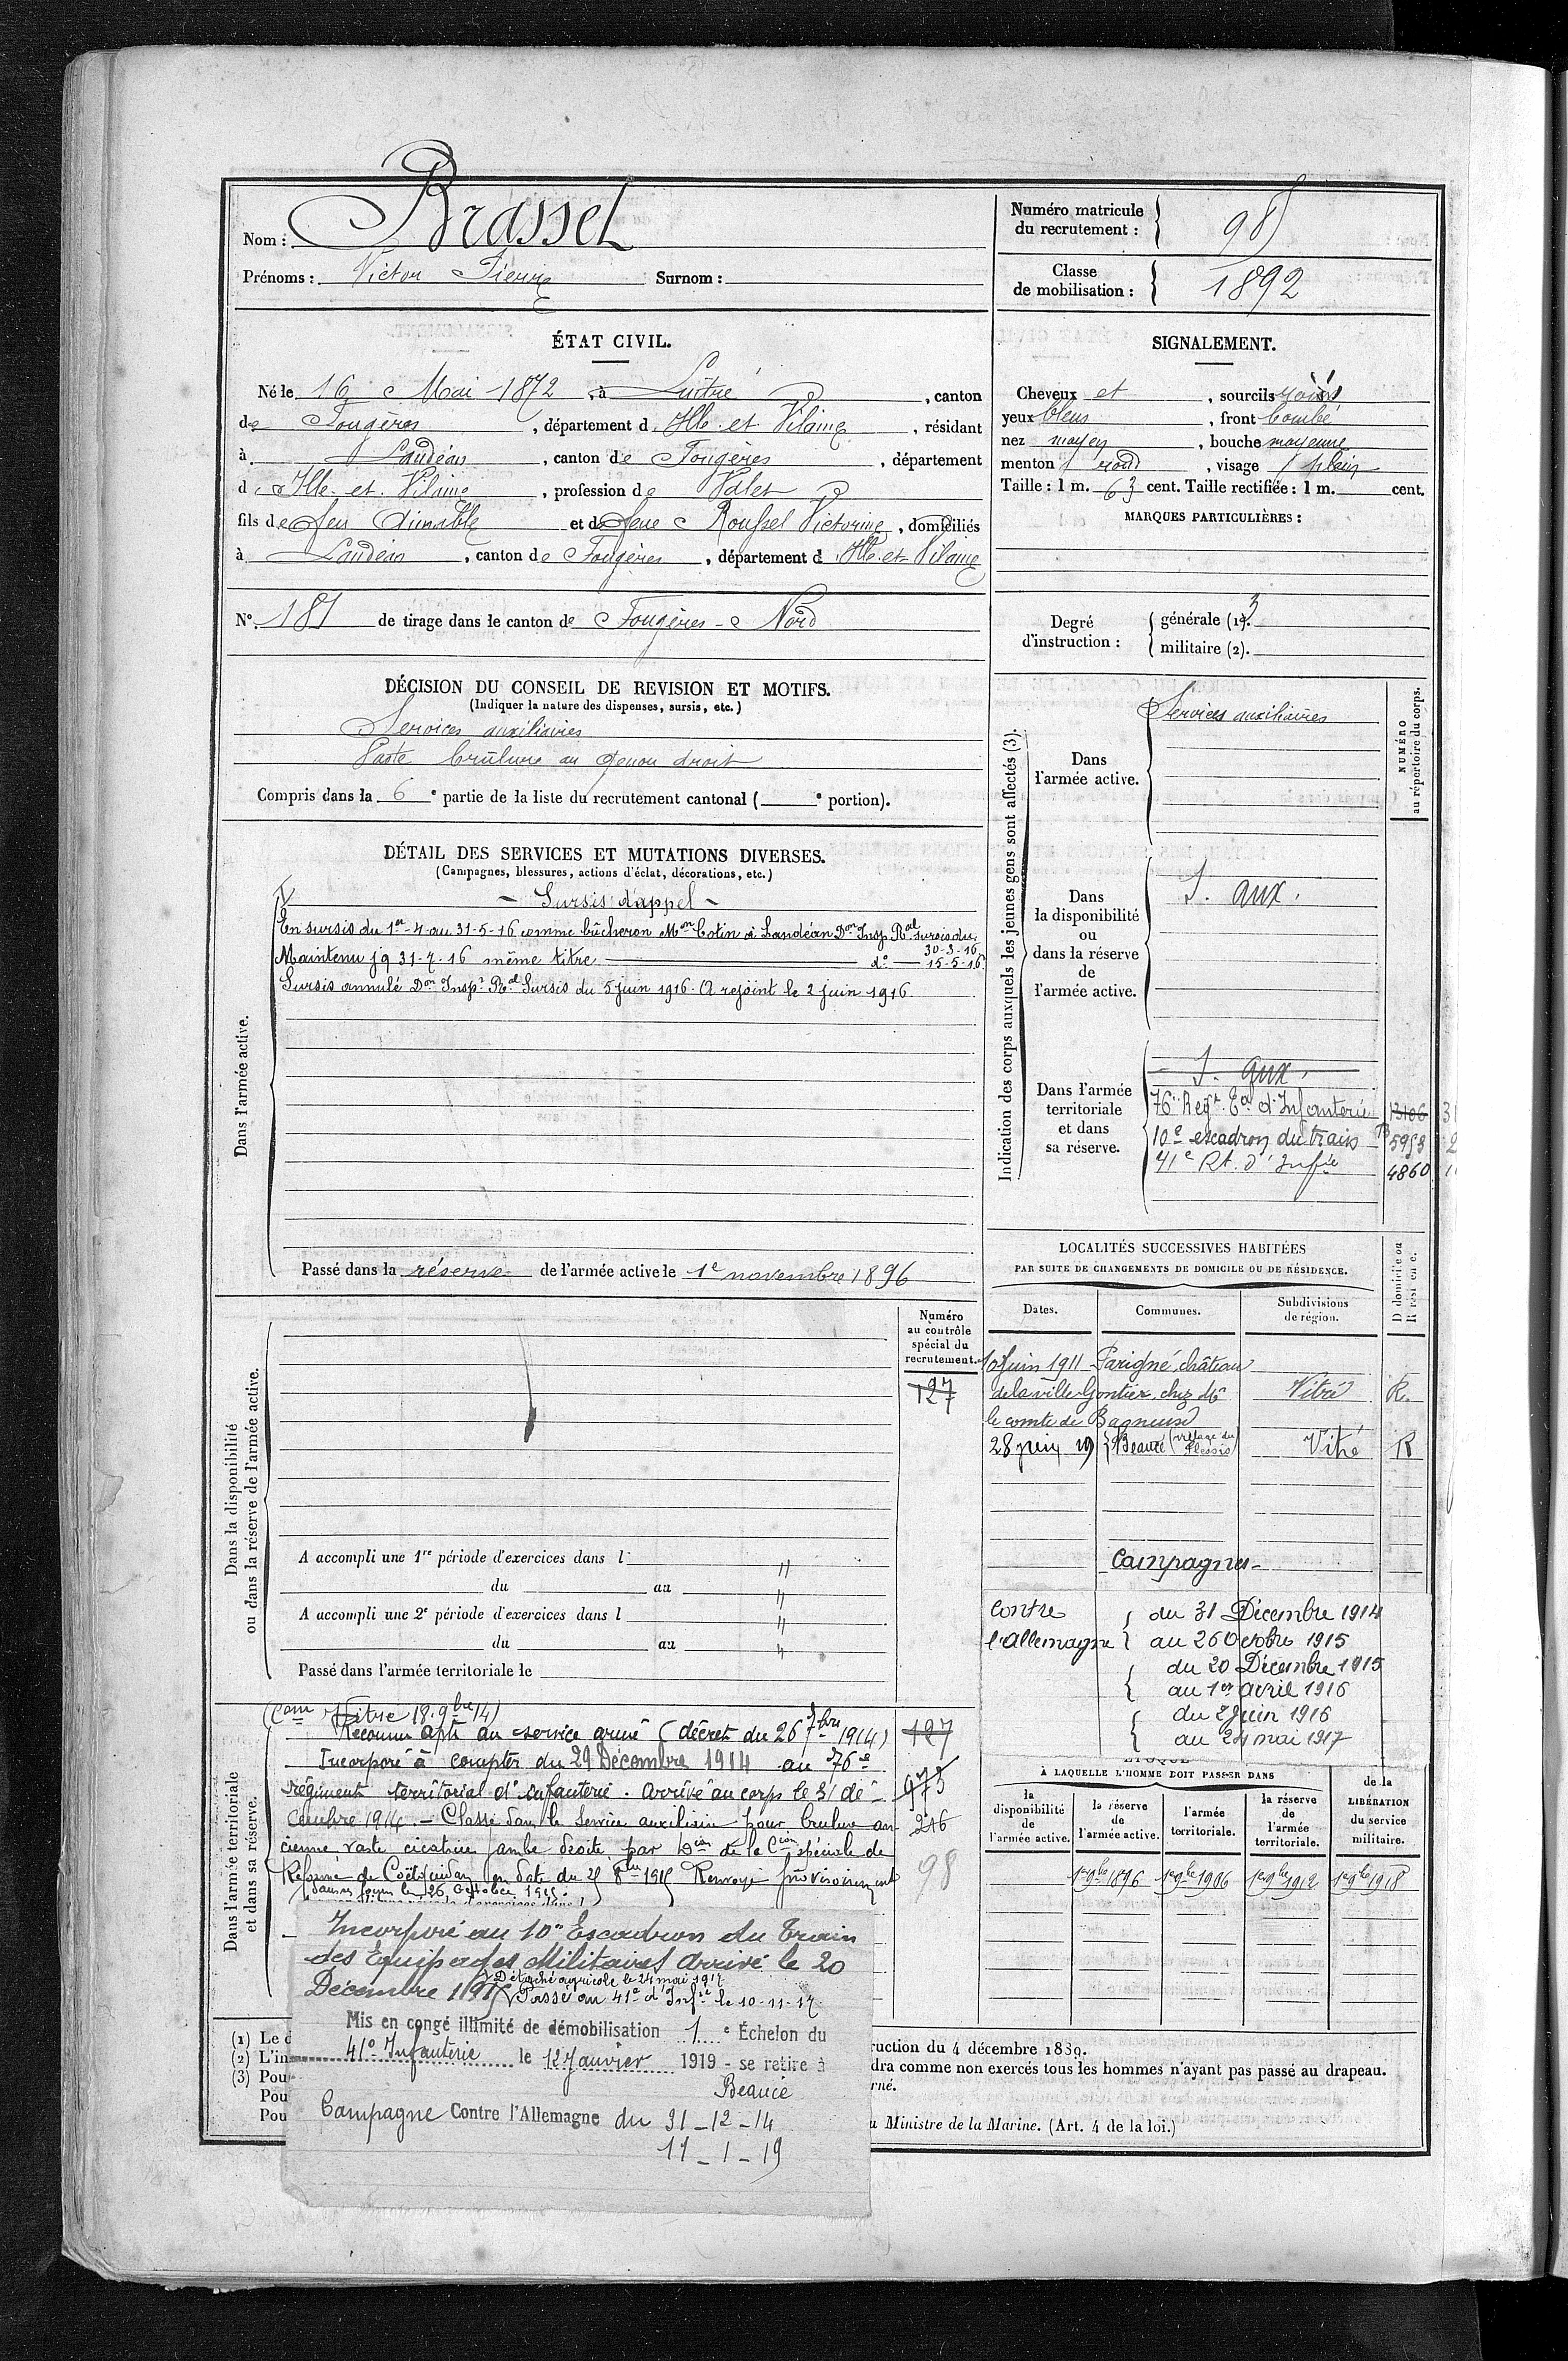 Nom : Brassel
Prénoms : Victor Pierre Surnom :
Numéro matricule du recrutement : 98
Classe de mobilisation : 1892
ÉTAT CIVIL.
Né le 16 Mai 1872, à Luitré, canton
de Fougères, département d'Ille et Vilaine, résidant
à Landéan, canton de Fougères, département
d'Ille et Vilaine, profession de Valet
fils de feu Aimable et de feue Roussel Victorine, domiciliés
à Landéan, canton de Fougères, département d'Ille et Vilaine
N° 181 de tirage dans le canton de Fougères-Nord
SIGNALEMENT.
Cheveux et, sourcils noirs
yeux bleus, front bombé
nez moyen, bouche moyenne
menton rond, visage plein
Taille : 1 m. 63 cent. Taille rectifiée : 1 m. cent.
MARQUES PARTICULIÈRES :
Degré d'instruction : générale (1). 3
militaire (2).
DÉCISION DU CONSEIL DE REVISION ET MOTIFS.
(Indiquer la nature des dispenses, sursis, etc.)
Services auxiliaires
Vaste brûlure au genou droit
Compris dans la 6e partie de la liste du recrutement cantonal ( e portion).
DÉTAIL DES SERVICES ET MUTATIONS DIVERSES.
(Campagnes, blessures, actions d'éclat, décorations, etc.)
Dans l'armée active.
- Sursis d'appel -
En sursis du 1er-4 au 31-5-16 comme bûcheron Mon Colin à Landéan Don Insp. Ral sursis du 30-3-16
Maintenu jq 31-7-16 même titre d° 15-5-16
Sursis annulé Don Inspn Ral Sursis du 5 juin 1916. A rejoint le 2 juin 1916.
Passé dans la réserve de l'armée active le 1e novembre 1896
Indication des corps auxquels les jeunes gens sont affectés (3).
NUMÉRO au répertoire du corps.
Dans l'armée active.
Services auxiliaires
Dans la disponibilité ou dans la réserve de l'armée active.
S. aux.
Dans l'armée territoriale et dans sa réserve.
S. aux.
76e Regt Eal d'Infanterie 13106
10e escadron du train 5953
41e Rt. d'Infie 4860
LOCALITÉS SUCCESSIVES HABITÉES
PAR SUITE DE CHANGEMENTS DE DOMICILE OU DE RÉSIDENCE.
Dates. Communes. Subdivisions de région. D domicile ou R résidence.
10 Juin 1911 Parigné, château
de la ville Gontier, chez Mr Vitré R.
le comte de Bagneux
28 juin 19 Beaucé (village du Plessis) Vitré R
Dans la disponibilité ou dans la réserve de l'armée active.
Numéro au contrôle spécial du recrutement.
127
A accompli une 1re période d'exercices dans l "
du au "
A accompli une 2e période d'exercices dans l "
du au "
Passé dans l'armée territoriale le
Campagnes
Contre l'Allemagne
du 31 Décembre 1914
au 26 Octobre 1915
du 20 Décembre 1915
au 1er avril 1916
du 2 Juin 1916
au 24 mai 1917
Dans l'armée territoriale et dans sa réserve.
(Com Vitré 18.9bre 14)
Reconnu apte au service armé (décret du 26 7bre 1914) 127
Incorporé à compter du 29 Décembre 1914 au 76e
régiment territorial d'infanterie. Arrivé au corps le 31 dé- 973
cembre 1914. - Classé dans le service auxiliaire pour brulure an- 216
cienne vaste cicatrice jambe droite par Dion de la Cion spéciale de
Réforme de Coëtquidan en date du 21 8bre 1915 Renvoyé provisoirement 98
dans ses foyers le 26 Octobre 1915.
Incorporé au 10e Escadron du Train
des Equipages Militaires Arrivé le 20
Décembre 1915
Détaché agricole le 24 mai 1917
Passé au 41e d'Infie le 10-11-17
Mis en congé illimité de démobilisation 1e Échelon du
41e Infanterie le 12 Janvier 1919 - se retire à
Beaucé
Campagne Contre l'Allemagne du 31-12-14
11-1-19
ÉPOQUE
À LAQUELLE L'HOMME DOIT PASSER DANS
la disponibilité de l'armée active.
la réserve de l'armée active.
l'armée territoriale.
la réserve de l'armée territoriale.
de la LIBÉRATION du service militaire.
1er 9bre 1896 1er 9bre 1906 1er 9bre 1912 1er 9bre 1918
(1) Le d
(2) L'in
(3) Pou
Pou
Pou
ruction du 4 décembre 1889.
dra comme non exercés tous les hommes n'ayant pas passé au drapeau.
rné.
u Ministre de la Marine. (Art. 4 de la loi.)